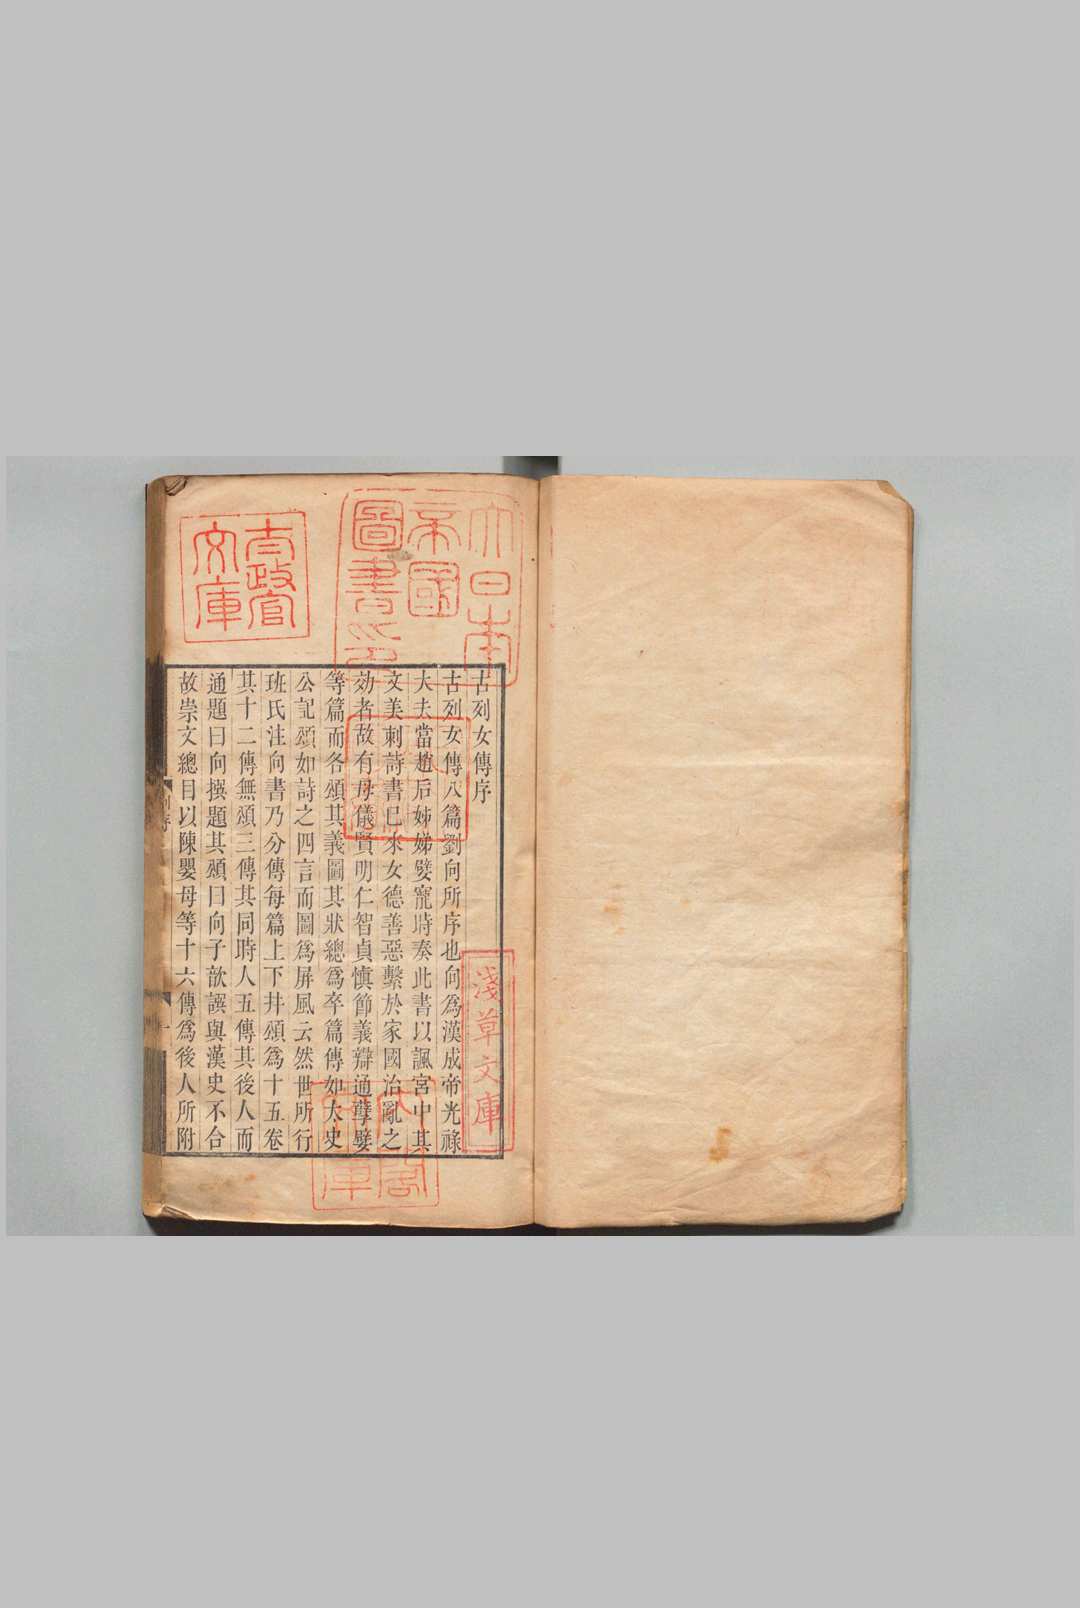 古列女傳序
古列女傳八篇劉向所序也向爲漢成帝光祿
大夫當趙后姊娣嬖寵時奏此書以諷宮中其
文美刺詩書已來女德善惡繫於家國治亂之
効者故有母儀賢明仁智貞慎節義辯通孽嬖
等篇而各頌其義圖其狀總爲卒篇傳如太史
公記頌如詩之四言而圖爲屏風云然世所行
班氏注向書乃分傳每篇上下并頌爲十五卷
其十二傳無頌三傳其同時人五傳其後人而
通題曰向撰題其頌曰向子歆譔與漢史不合
故崇文總目以陳嬰母等十六傳爲後人所附
大日本
帝國
圖書印
太政官
文庫
淺草文庫